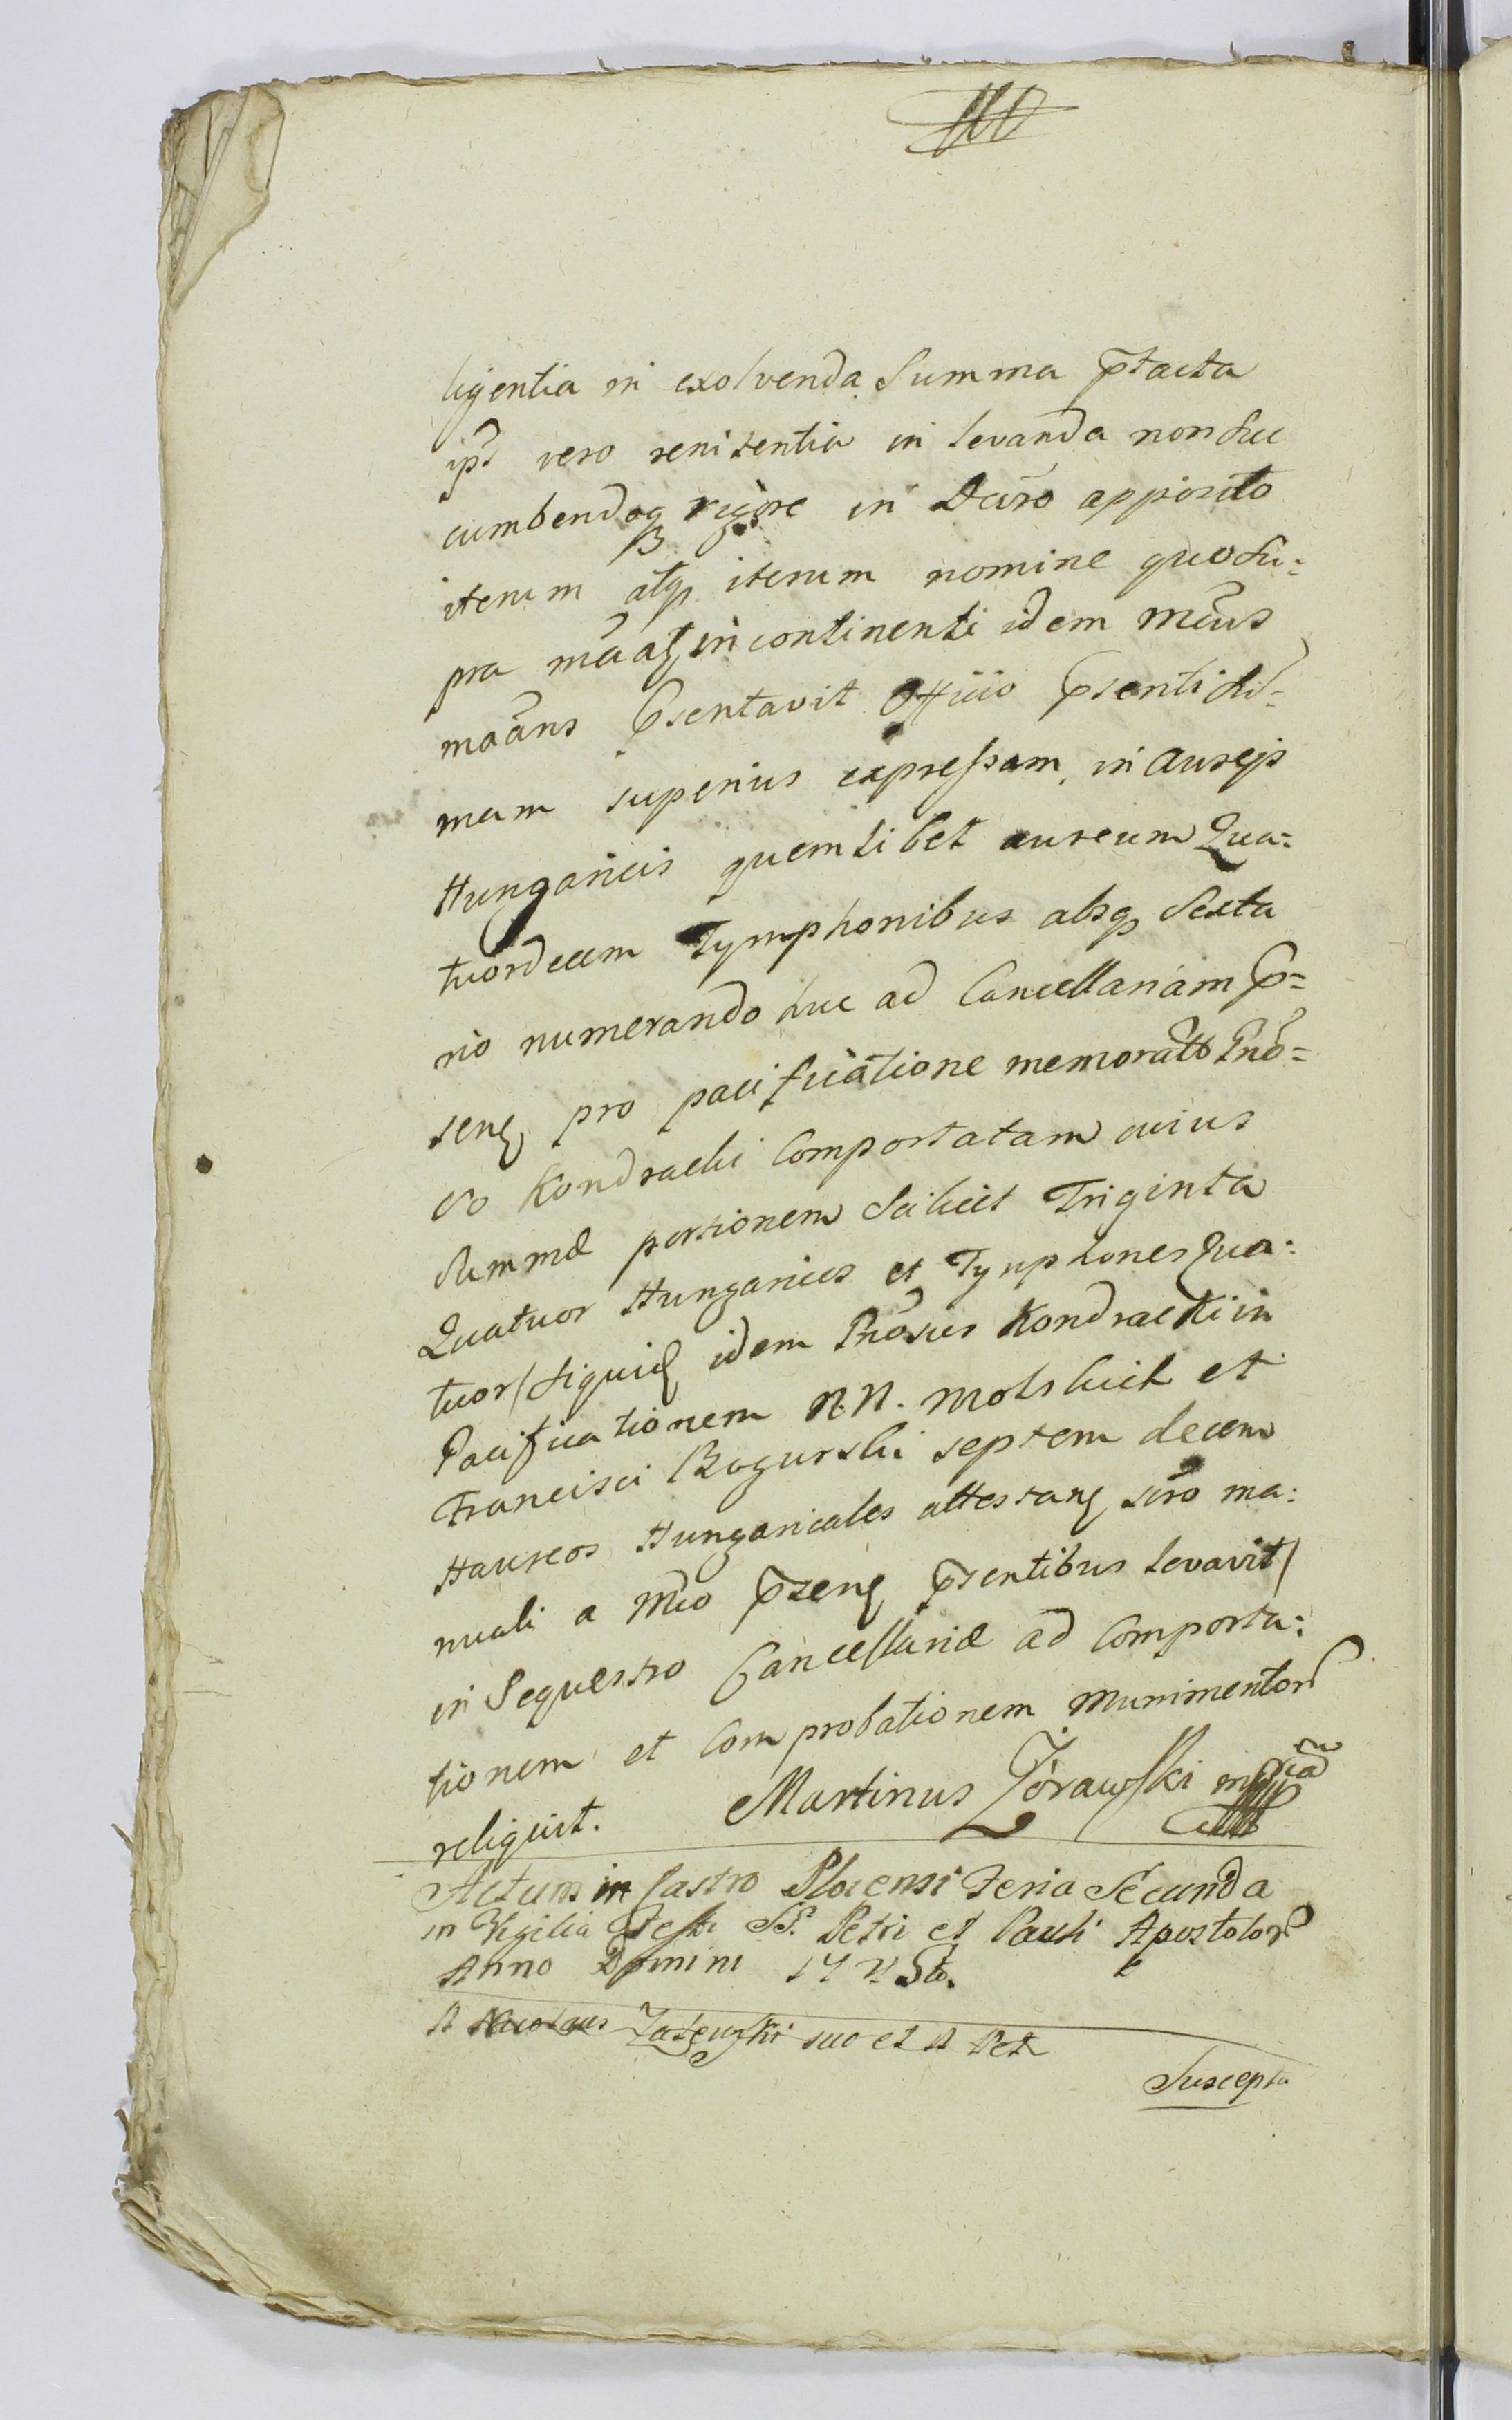 ligentia in exolvenda Summa ptacta
ips vero renitentia in levanda non suc
cumbendoq rigore in Decro apposito
iterum atq iterum nomine quo su=
pra
incontinenti idem Mcus
maans psentavit Officio psenti Su=
mam superius expressam in Aureis
Hungaricis quemlibet aureum Qua=
tuordecem Tymphonibus absq Sexta
rio numerando huc ad Cancellariam p=
senę pro pacificatione memorato Gno=
so Kondracki Comportatam cuius
Summæ portionem Scilicet Triginta
Quatuor Hungaricos et Tynphones Qua:
tuor/ siquid idem Gnosus Kondracki in
Pacificationem N.N. Molskich et
Francisci Bogurski septem decem
Haureos Hungaricales attestanę scro ma:
nuali a Mco pzenę psentibus levavit/
in Sequestro Cancellariæ ad Comporta:
tionem et Comprobationem Munimentor
reliquit. Martinus Żórawski mpria
Actum in Castro Plocensi Feria Secunda
in Vigilia Festi SS. Petri et Pauli Apostolor
Anno Domini
suo et N
Suscepta